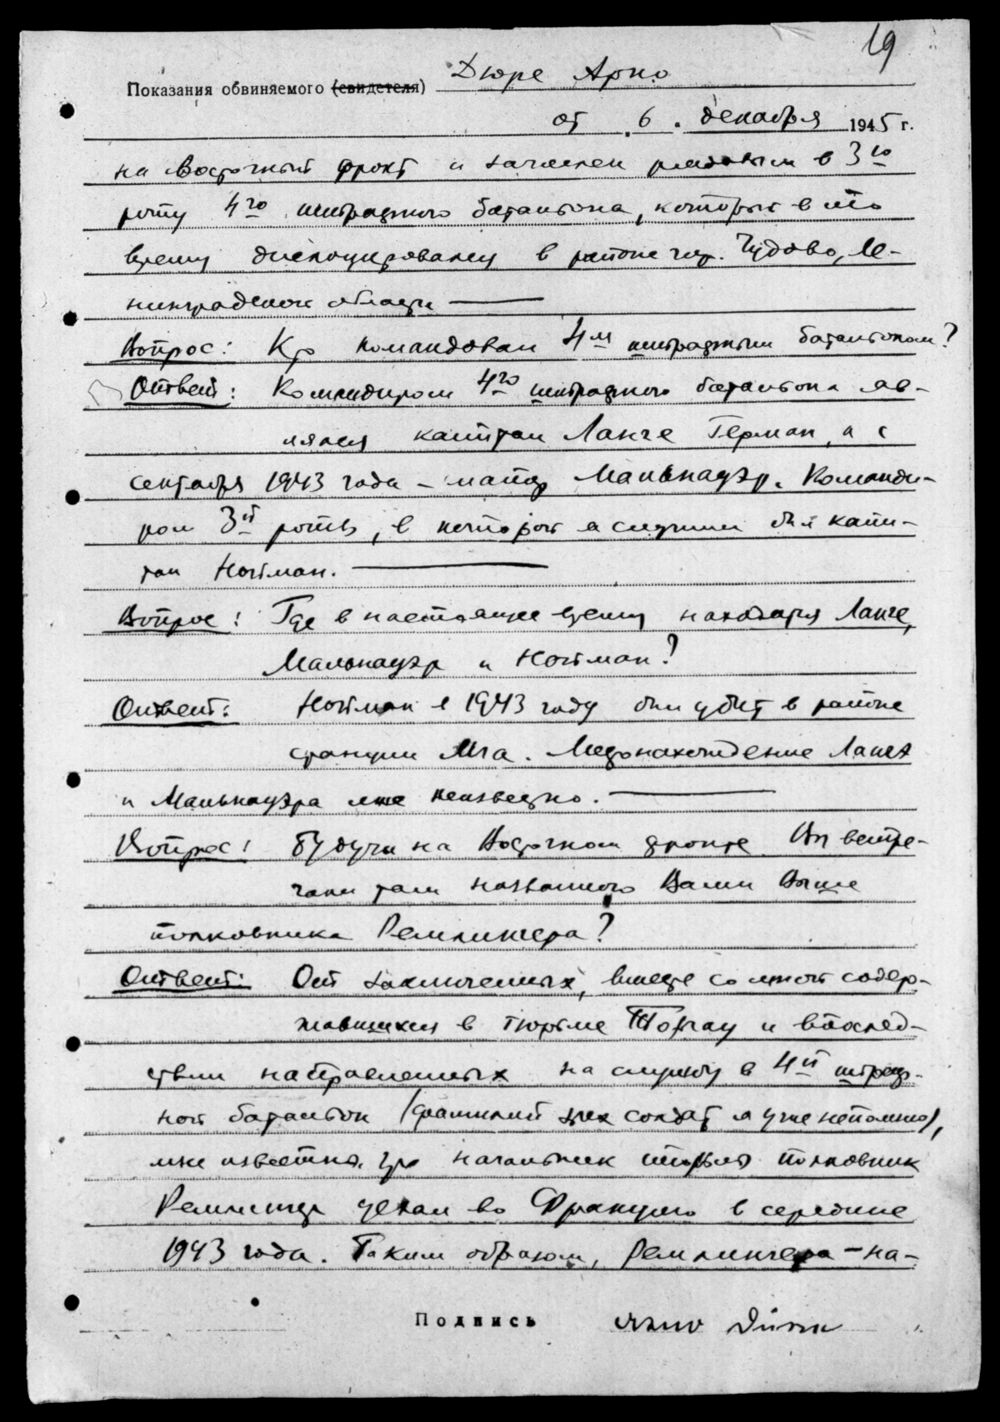 19
Показания обвиняемого (свидетеля) Дюре Арно
от 6. декабря 1945 г.
на Восточный фронт и зачислен рядовым в 3ю
роту 4го штрафного батальона, который в то
время дислоцировался в районе гор. Чудово, Ле-
нинградской области —
Вопрос: Кто командовал 4м штрафным батальоном?
Ответ: Командиром 4го штрафного батальона яв-
лялся капитан Ланге Герман, а с
сентября 1943 года – майор Мальнауэр. Команди-
ром 3й роты, в которой я служил был капи-
тан Нойман. —
Вопрос: Где в настоящее время находятся Ланге,
Мальнауэр и Нойман?
Ответ: Нойман в 1943 году был убит в районе
станции Мга. Местонахождение Ланге
и Мальнауэра мне неизвестно. —
Вопрос: Будучи на Восточном фронте Вы встре-
чали там названного Вами выше
полковника Ремлингера?
Ответ: От заключенных, вместе со мной содер-
жавшихся в тюрьме Торгау и впослед-
ствии направленных на службу в 4й штраф-
ной батальон (фамилий этих солдат я уже не помню),
мне известно, что начальник тюрьмы полковник
Ремлингер уехал во Францию в середине
1943 года. Таким образом, Ремлингера – на-
Подпись Arno Düre